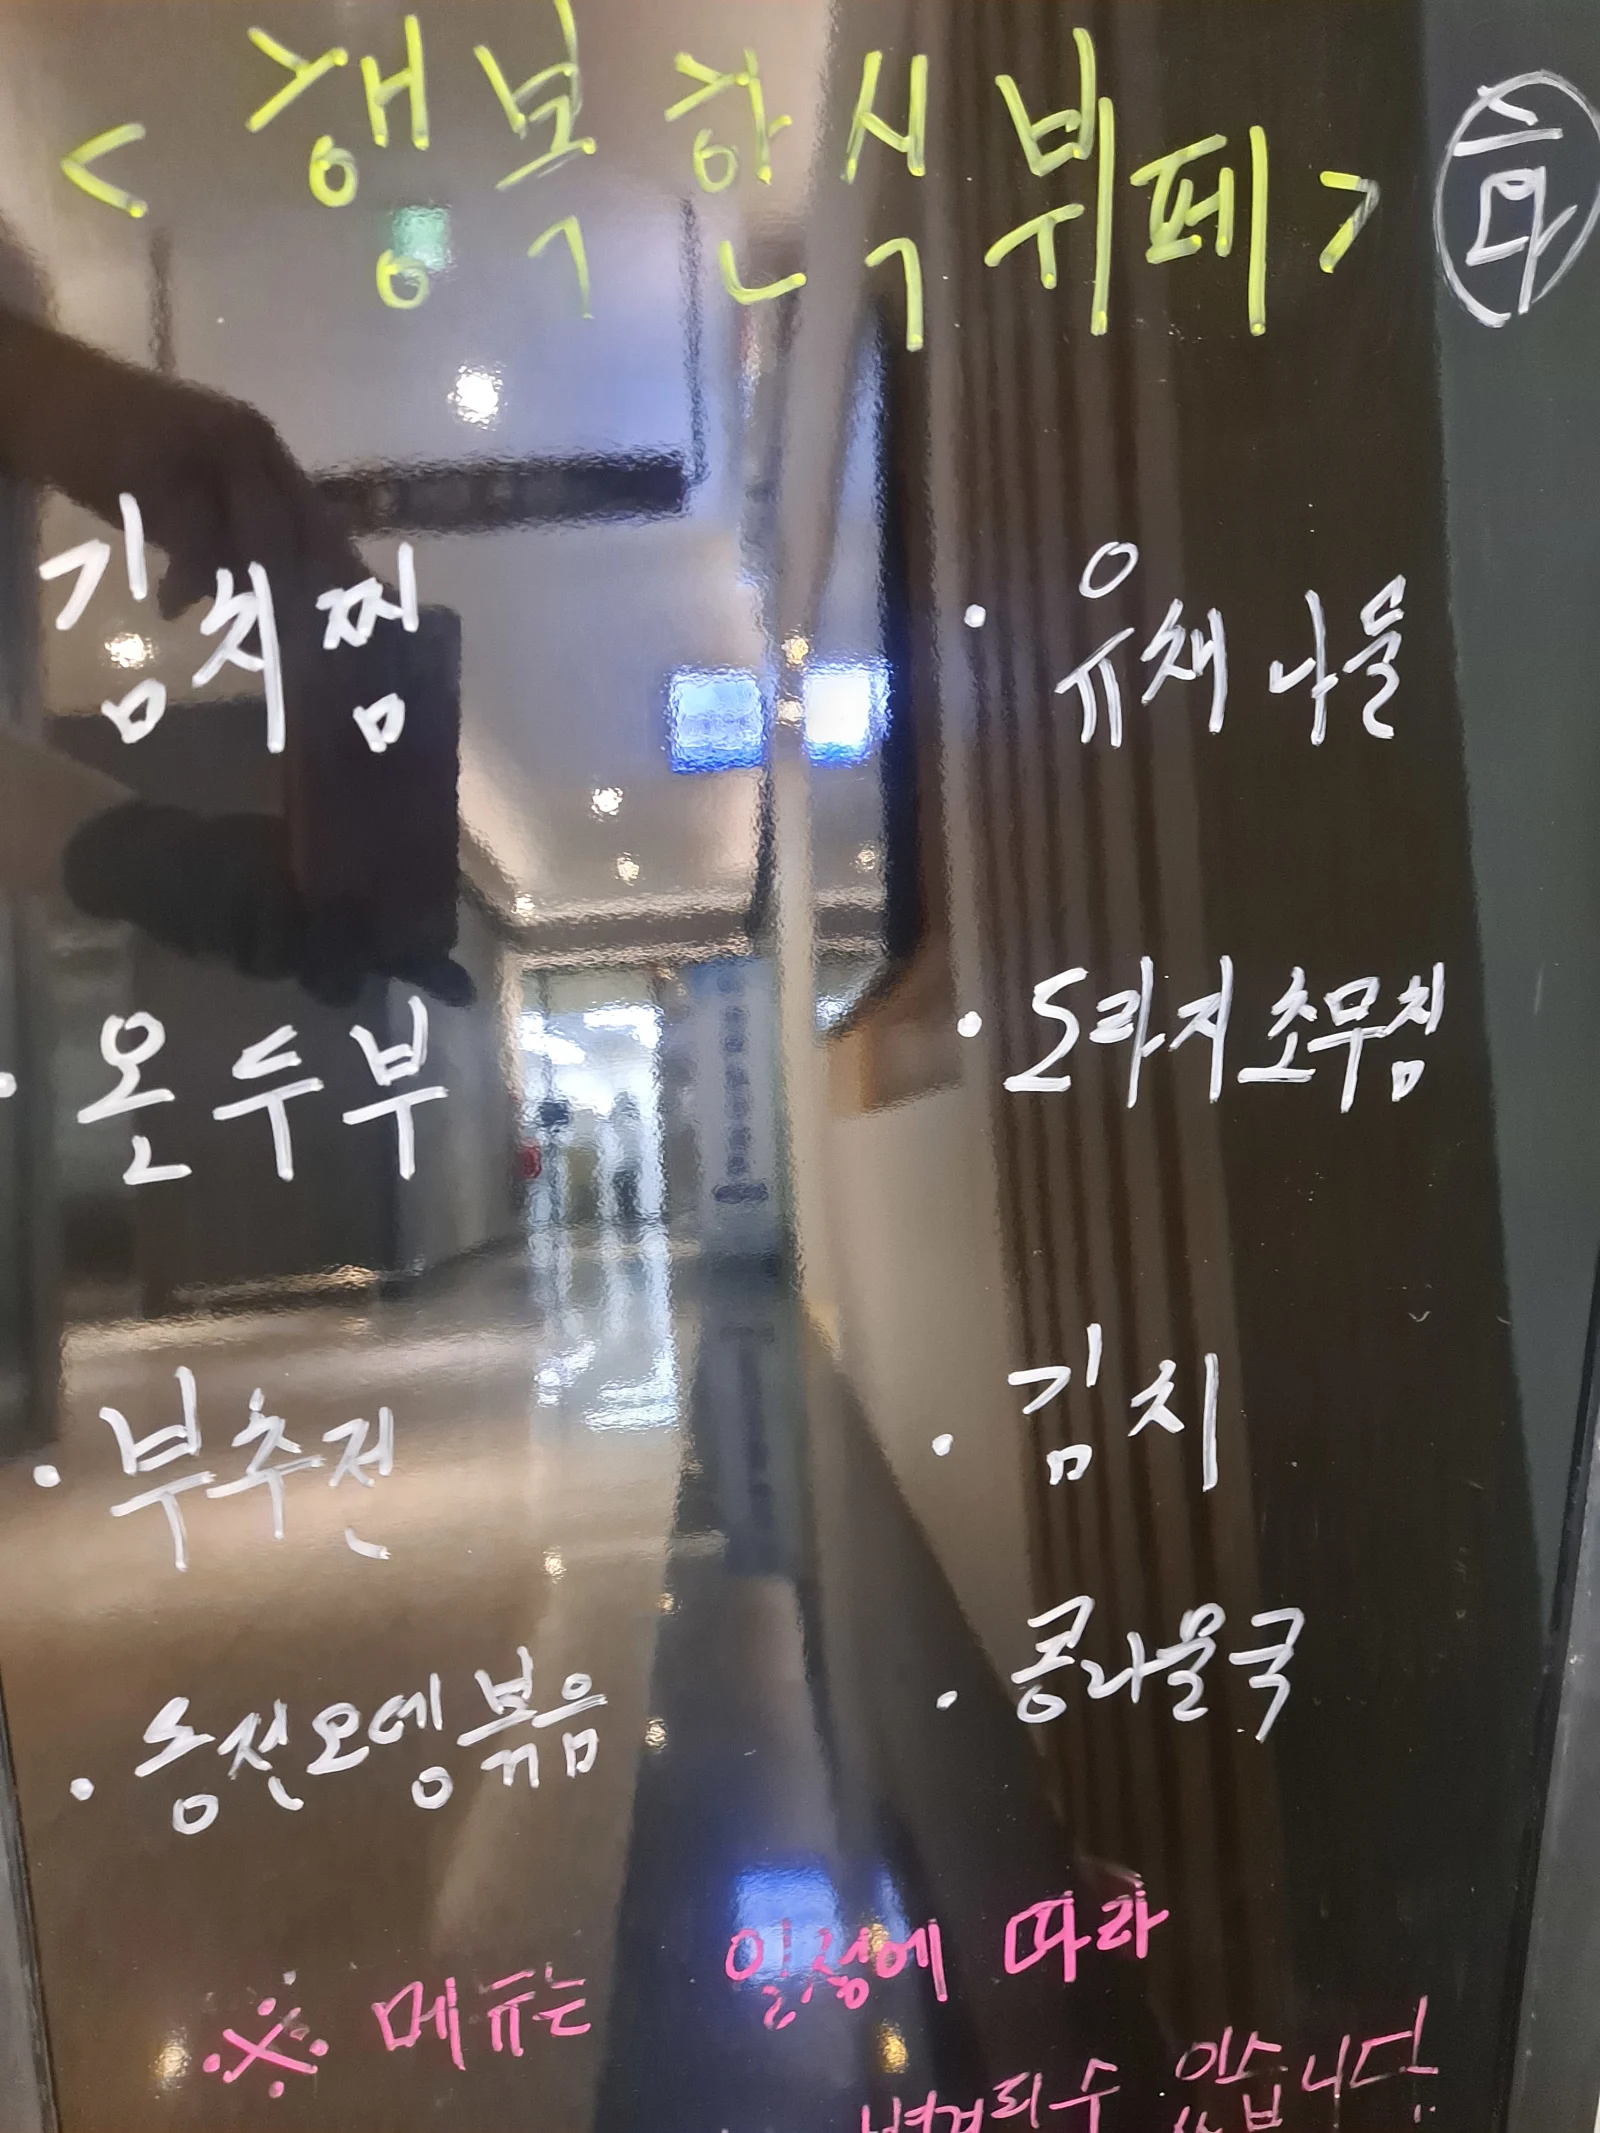 < 행복한식뷔페>
김치찜
· 온두부
· 부추전
· 동전오뎅볶음
· 유채나물
· 도라지초무침
· 김치
· 콩나물국
※ 메뉴는 일정에 따라
변경되수 있습니다.